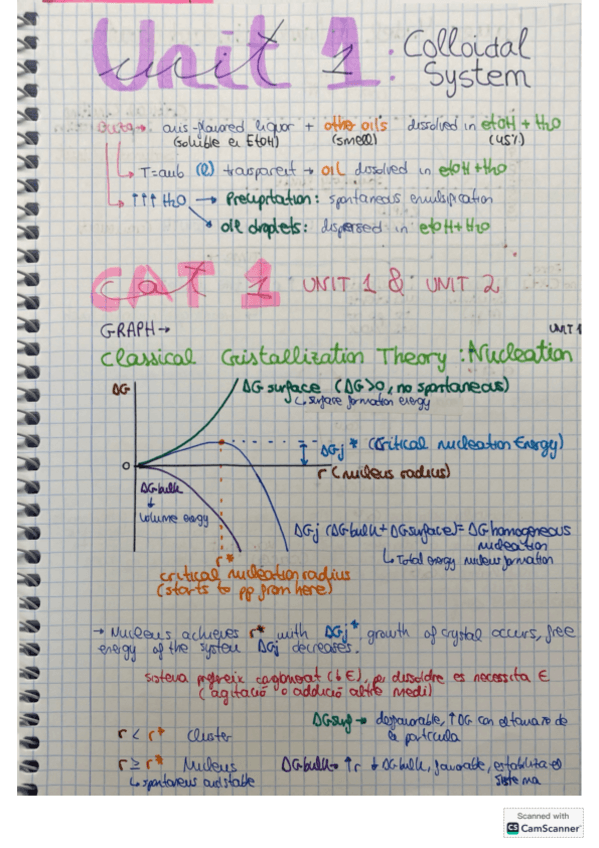 Unit 1: Colloidal System
Ouzo → anis-flavored liquor + other oils dissolved in etOH + H2O
(soluble ei EtOH) (smell) (45%)
T=amb (l) transparent → oil dissolved in etOH + H2O
↑↑↑ H2O → Precipitation: spontaneous emulsification
oil droplets: dispersed in etOH + H2O
CAT 1 UNIT 1 & UNIT 2
GRAPH →
UNIT 1
Classical Cristallization Theory: Nucleation
ΔG
ΔG surface (ΔG>0, no spontaneous)
↳ surface formation energy
ΔGj* (Critical nucleation Energy)
0
r (nucleus radius)
ΔGbulk
↓
Volume energy
ΔGj (ΔGbulk + ΔGsurface) = ΔG homogeneous nucleation
↳ Total energy nucleus formation
r*
critical nucleation radius
(starts to pp from here)
→ Nucleus achieves r* with ΔGj* growth of crystal occurs, free
energy of the system ΔGj decreases.
sistema prefereix caglomerat (↓E), per dissoldre es necessita E
(agitació o addició altre medi)
ΔGsurf → desfavorable, ↑ΔG con el tamaño de
la partícula
r < r* Cluster
r ≥ r* Nucleus
↳ spontaneous and stable
ΔGbulk → ↑r ↓ΔGbulk, favorable, estabilita el
sistema
Scanned with
CS CamScanner